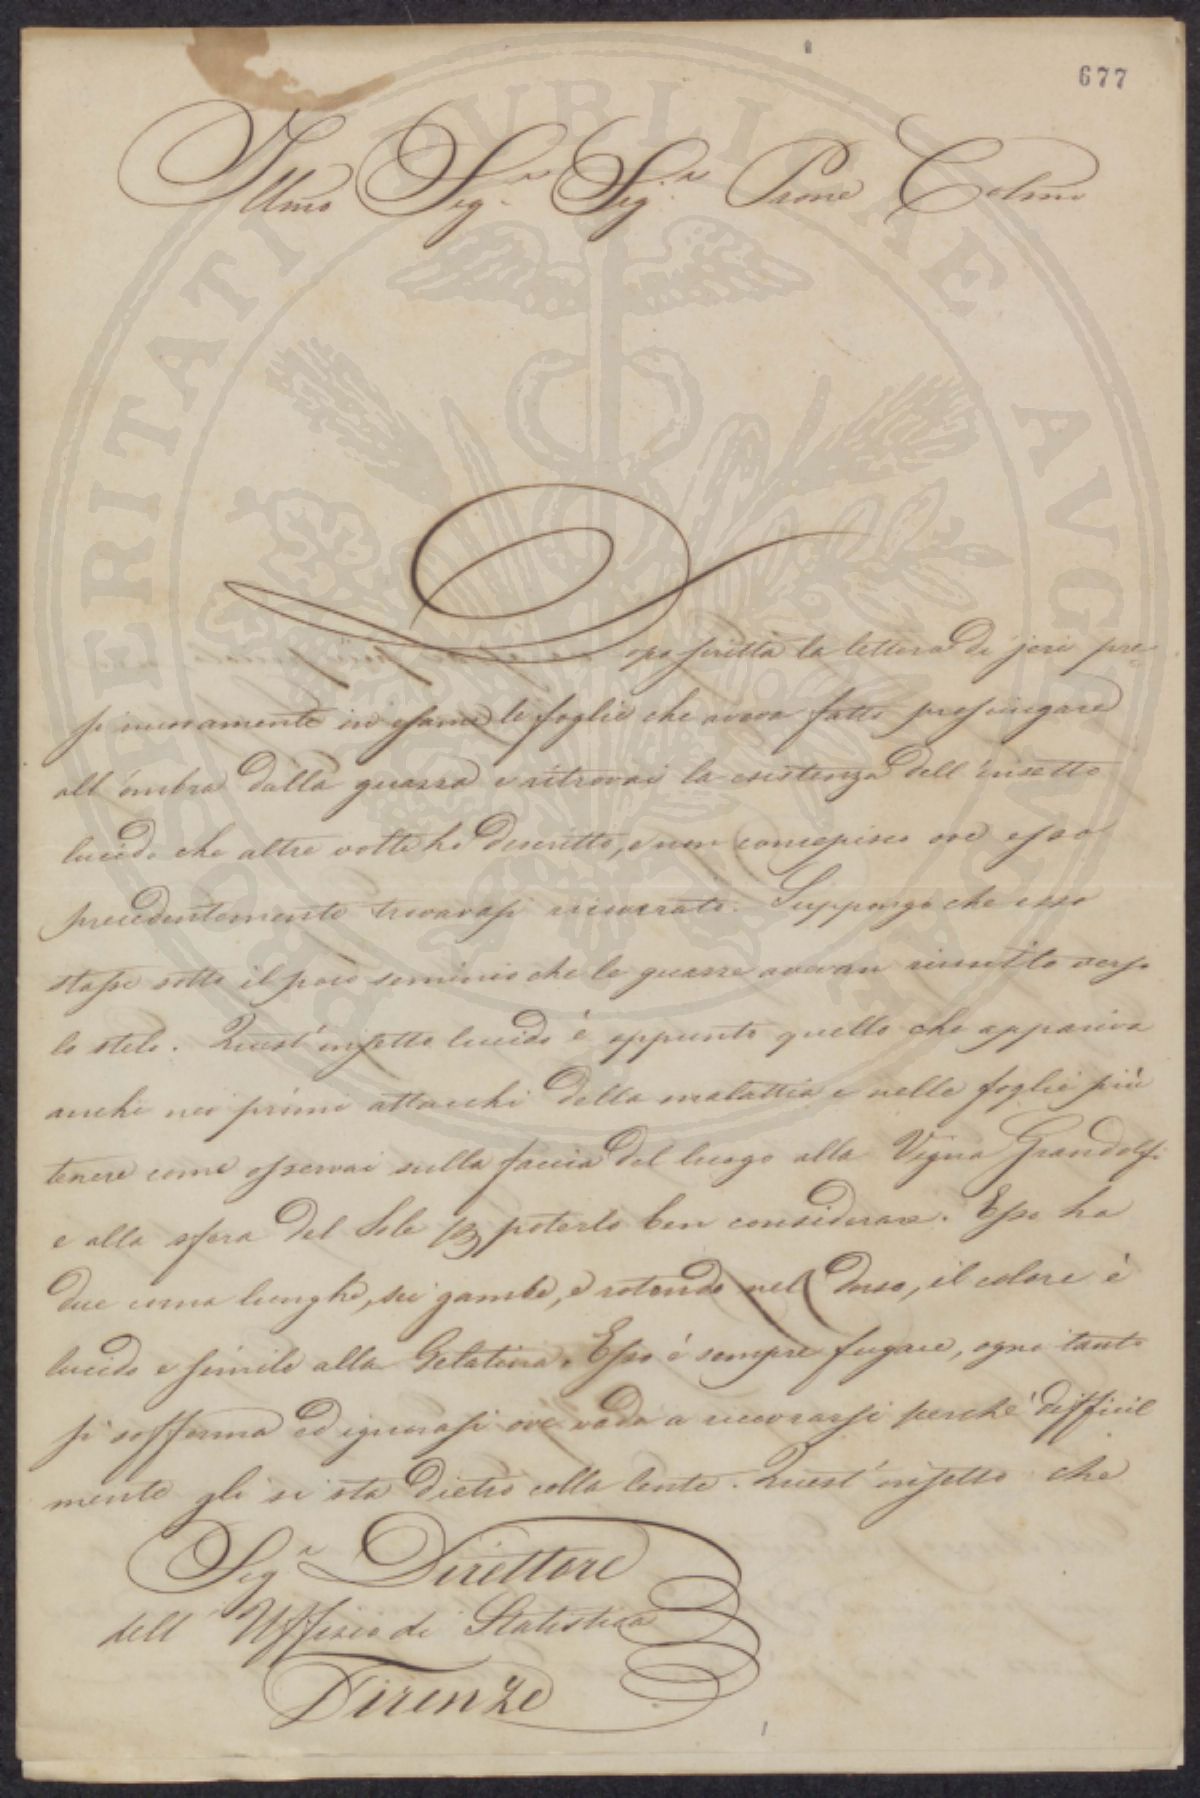 677
Illmo Sig.r Sig.r Prone Colmo
Dopo scritta la lettera di jeri pre
si nuovamente in esame le foglie che aveva fatte prosciugare
all'ombra dalla guazza e ritrovai la esistenza dell'insetto
lucido che altre volte ho descritto, e non concepisco ove esso
precedentemente trovavasi ricovrato. Suppongo che esso
stasse sotto il poco seminio che le guazze avevan riunito verso
lo stelo. Quest'insetto lucido è appunto quello che appariva
anche nei primi attacchi della malattia e nelle foglie più
tenere come osservai sulla faccia del luogo alla Vigna Grandolfi
e alla sfera del Sole per poterlo ben considerare. Esso ha
due corna lunghe, sei gambe, è rotondo nel dorso, il colore è
lucido e simile alla Gelatina. Esso è sempre fugace, ogni tanto
si sofferma ed ignorasi ove vada a ricovrarsi perchè difficil
mente gli si sta dietro colla lente. Quest'insetto che
Sig.r Direttore
dell'Uffizio di Statistica
Firenze
PROSPERITATI PUBLICAE AVGENDAE